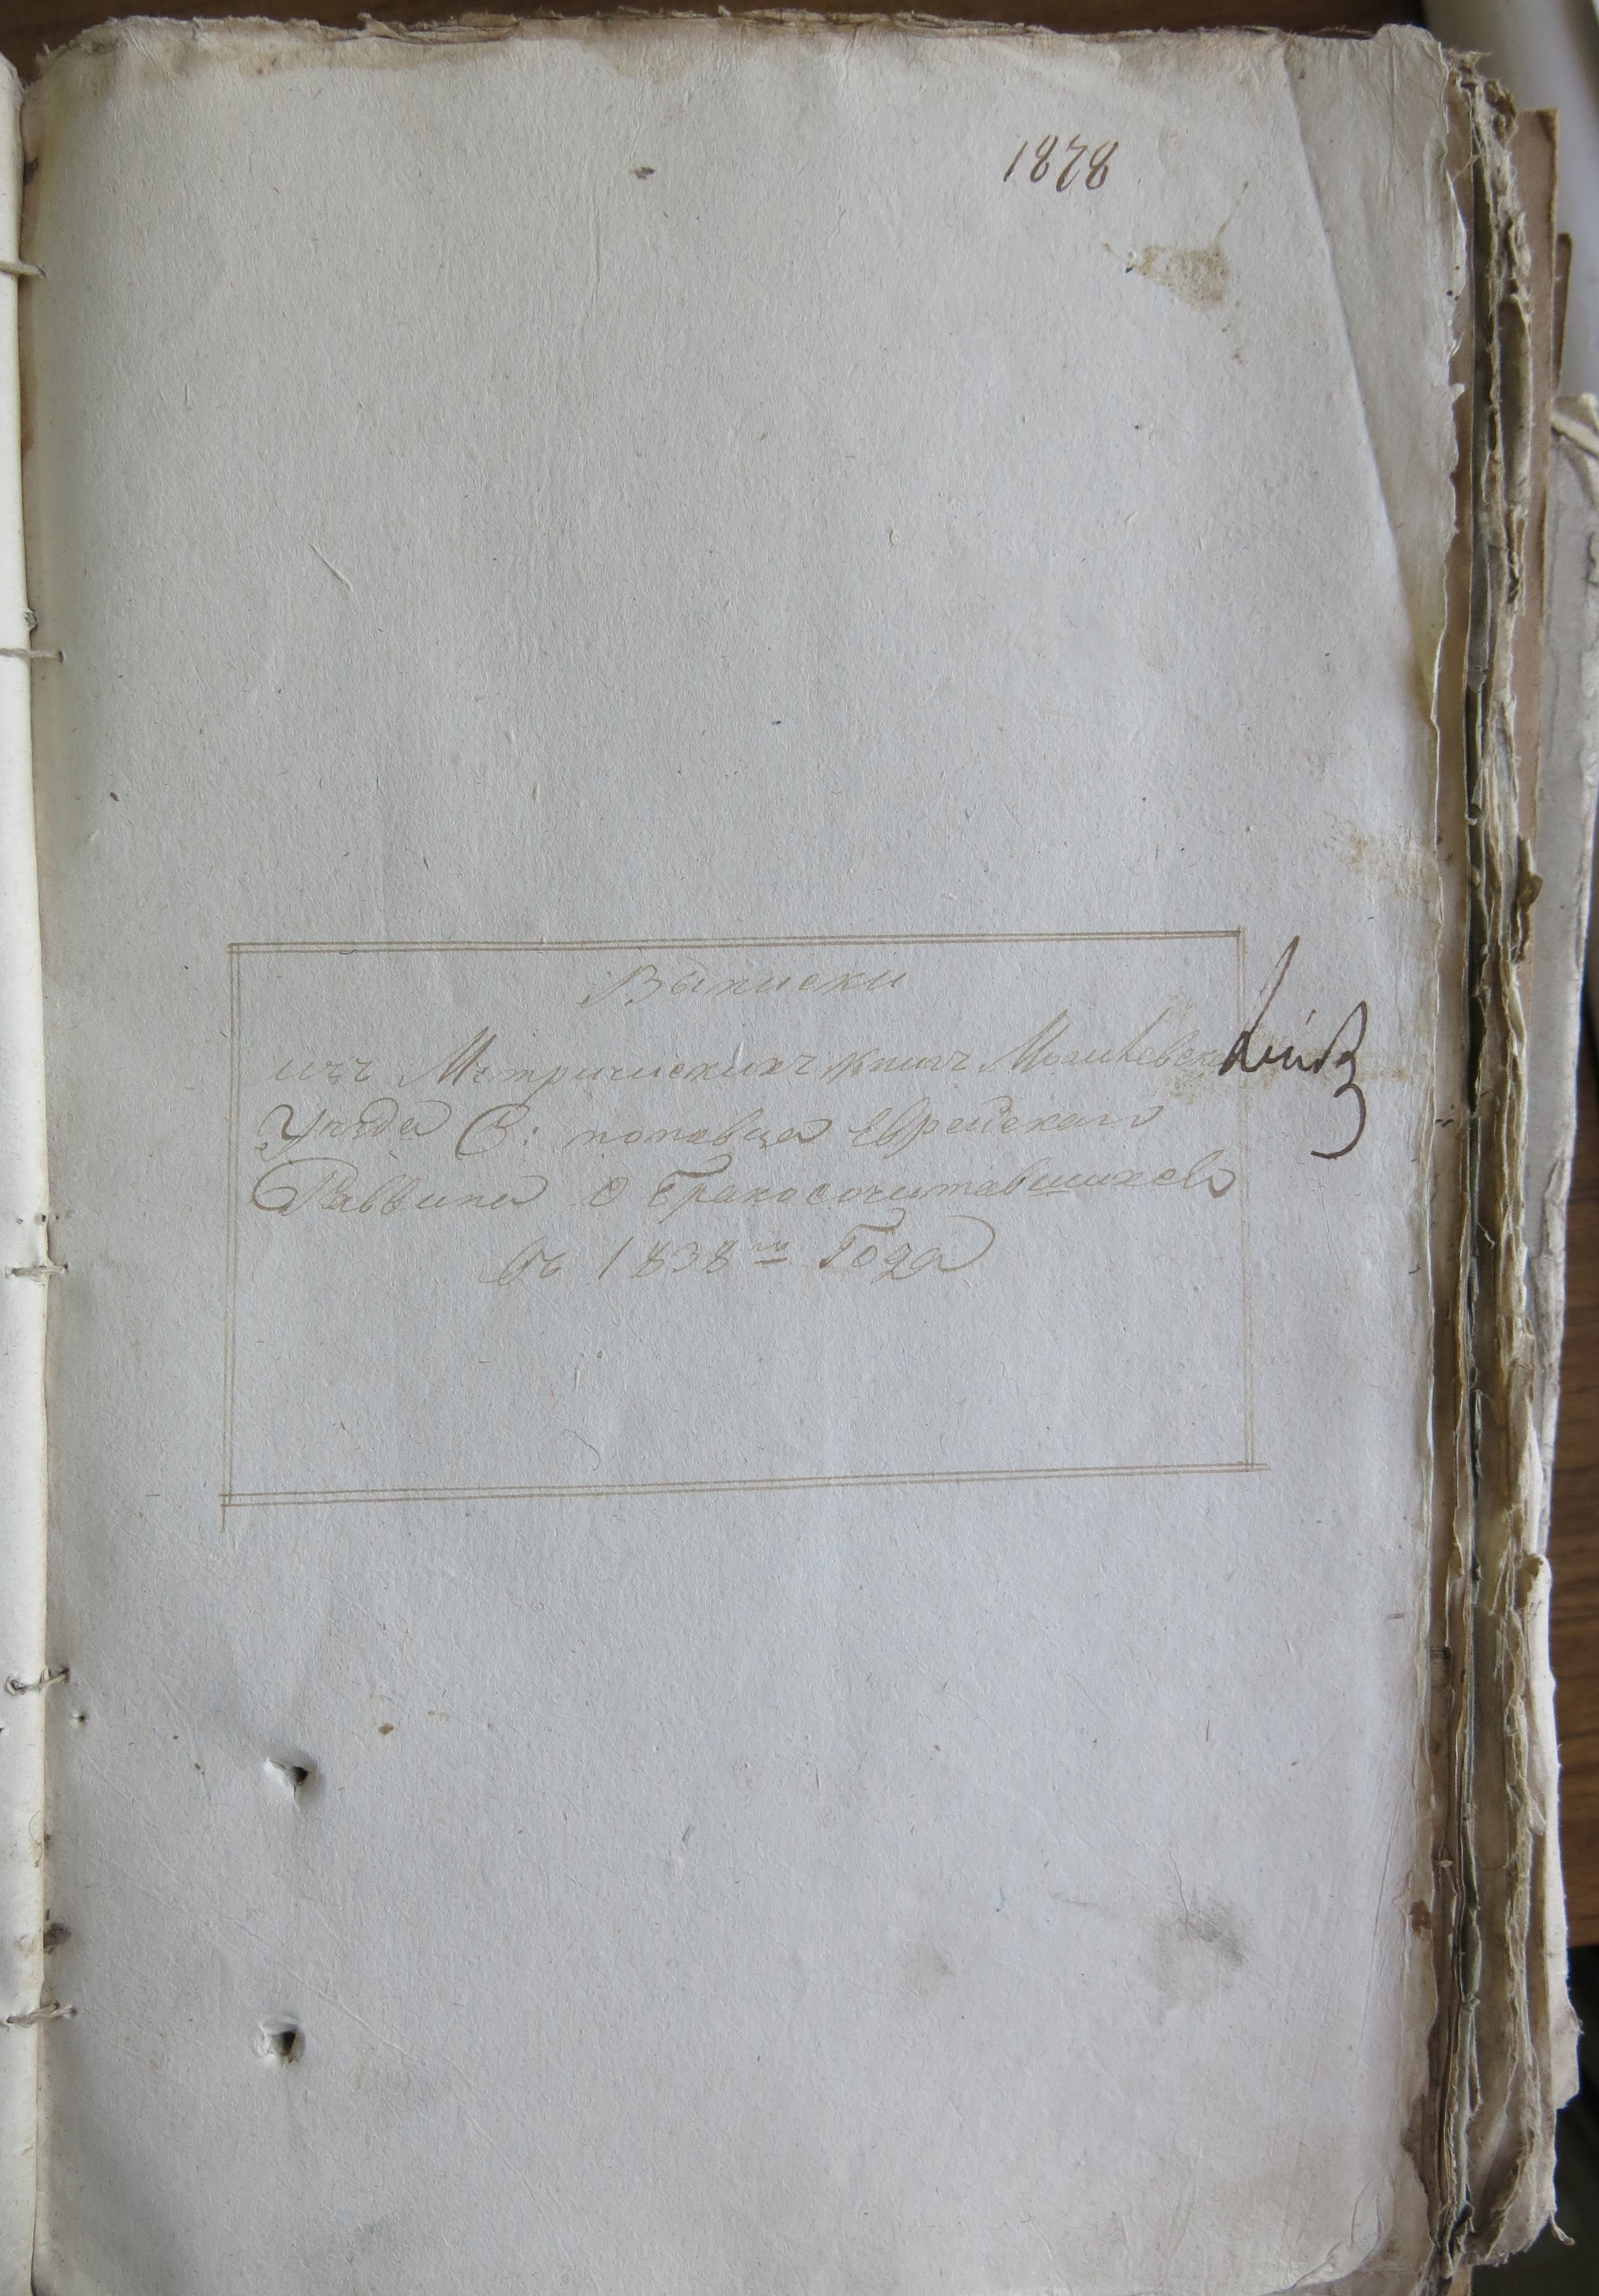 1878
Выписки
изъ Метрическихъ книгъ Могилевска
Уезда С: поповца Еврейскаго
Раввина о бракосочитавшихся
съ 1838го Года